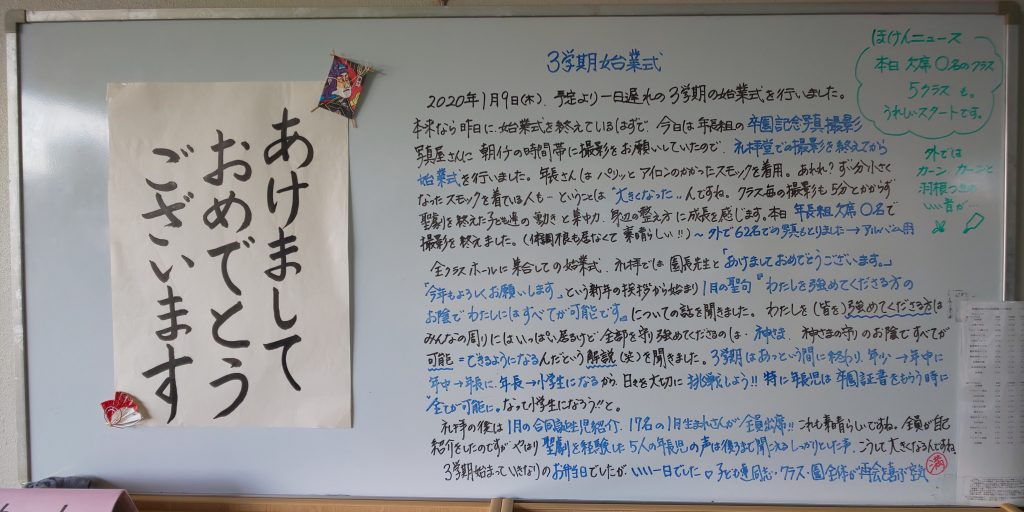 あけまして
おめでとう
ございます
3学期始業式
2020年1月9日(木)、予定より一日遅れの3学期の始業式を行いました。
本来なら昨日に、始業式を終えているはずで、今日は年長組の卒園記念写真撮影
写真屋さんに朝イチの時間帯に撮影をお願いしていたので、礼拝堂での撮影を終えてから
始業式を行いました。年長さんはパリッとアイロンのかかったスモックを着用。あれれ?ずい分小さく
なったスモックを着ている人も…ということは"大きくなった"んですね。クラス毎の撮影も5分とかからず
聖劇を終えた子ども達の動きと集中力、身辺の整え方に成長を感じます。本日年長組欠席〇名で
撮影を終えました。(体調不良も居なくて素晴らしい!!)~外で62名での写真もとりました→アルバム用
全クラスホールに集合しての始業式、礼拝では園長先生と「あけましておめでとうございます。」
「今年もよろしくお願いします」という新年の挨拶から始まり1月の聖句『わたしを強めてくださる方の
お陰でわたしにはすべてが可能です』についての話を聞きました。わたしを(皆を)強めてくださる方は
みんなの周りにはいっぱい居るけど全部を守り強めてくださるのは・神さま、神さまの守りのお陰ですべてが
可能=できるようになるんだという解説(笑)を聞きました。3学期はあっという間に終わり、年少→年中に
年中→年長に、年長→小学生になるから日々を大切に挑戦しよう!!特に年長児は卒園証書をもらう時に
"全てが可能に"なって小学生になろう!!と。
礼拝の後は1月の合同誕生児紹介、17名の1月生まれさんが全員出席!!これも素晴らしいですね。全員が自己
紹介をしたのですがやはり聖劇を経験した5人の年長児の声は後ろまで聞こえるしっかりとした声、こうして大きくなるんですね。
3学期始まっていきなりのお弁当でしたが、いい一日でした♡子ども達同志・クラス・園全体が再会を喜ぶ
ほけんニュース
本日欠席〇名のクラス
5クラスも。
うれしいスタートです。
外では
カーンカーンと
羽根つきの
いい音が…